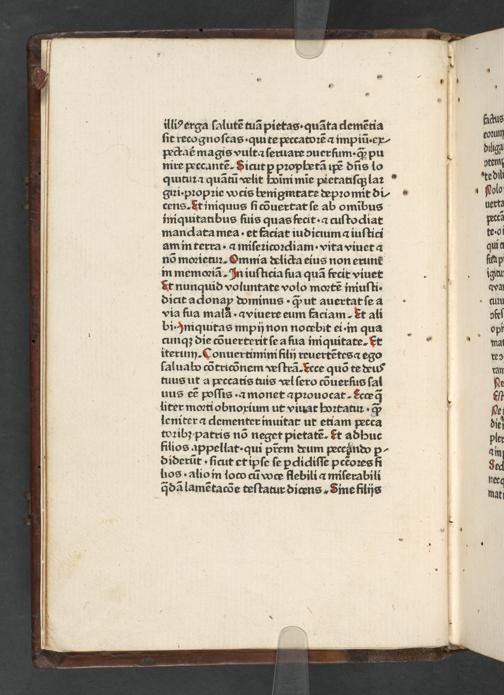 illiꝰ erga salutē tuā pietas · quāta demētia
sit recognoscas · qui te peccatorē ⁊ impiū · ex⸗
pectās magis vult ⁊ seruare ɔuersum · q̄ꝫ pu
nire peccantē. Sicut ꝑ prophetā ipe dn̄s lo
quitur ⁊ quātū velit homīnie pietatisqꝫ lar
giri · proprie vocis benignitate depromit di⸗
cens. Et iniquus si cōuertat se ab omībus
iniquitatibus suis quas fecit · ⁊ custodiat
mandata mea · et faciat iudicium ⁊ iustici
am in terra · ⁊ misericordiam · vita viuet ⁊
nō morietur. Omnia delicta eius non erunt
in memoriā. In iusticia sua quā fecit viuet
Et nunquid voluntate volo mortē iniusti ·
dicit adonay dominus · q̄ꝫ ut auertat se a
via sua mala · ⁊ viuere eum faciam. Et ali
bi · Iniquitas impij non nocebit ei · in qua
cunqꝫ die cōuerterit se a sua iniquitate. Et
iterum. Conuertimini filij reuertētes ⁊ ego
saluabo cōtricōnem vestrā. Ecce quō te deus
tuus ut a peccatis tuis vel sero cōuersus sal
uus eē possis · ⁊ monet ⁊ prouocat. Ecce q̄
liter morti obnoxium ut viuat hortatur · q̄ꝫ
leniter ⁊ clementer inuitat ut etiam pecca
toribꝫ patris nō neget pietatē. Et adhuc
filios appellat · qui prēm deum peccando ꝑ⸗
diderūt · sicut et ipse se ꝑdidisse pctōres fi
lios · alio in loco cū voce flebili ⁊ miserabili
q̄dā lamētacōe testatur dicens. Sine filijs
factus
eorum